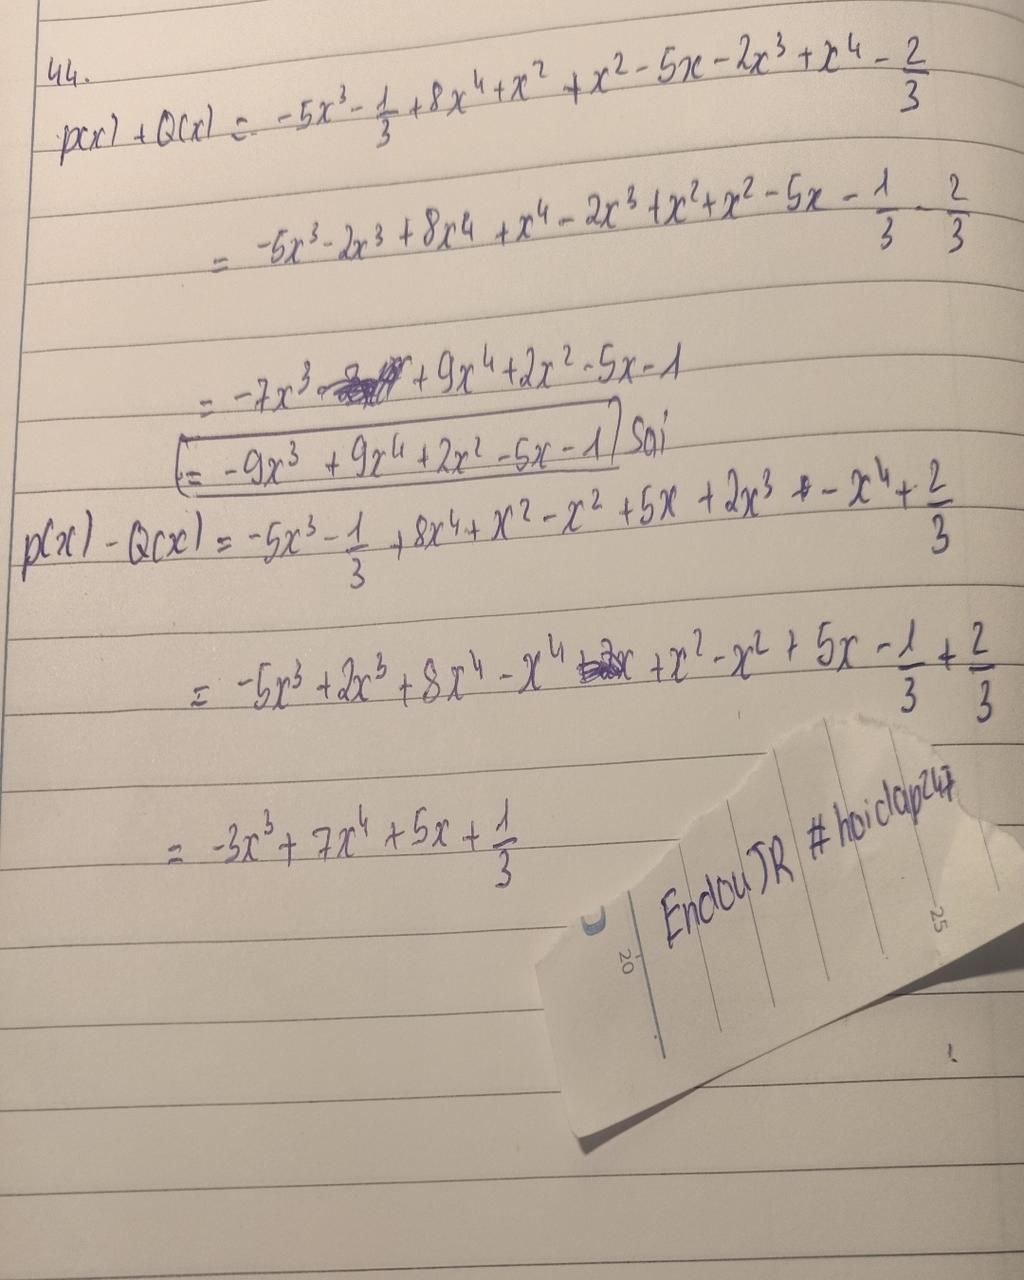 44.
p(x) + Q(x) = -5x³ - 1/3 + 8x⁴ + x² + x² - 5x - 2x³ + x⁴ - 2/3
= -5x³ - 2x³ + 8x⁴ + x⁴ - 2x³ + x² + x² - 5x - 1/3 - 2/3
= -7x³ + 9x⁴ + 2x² - 5x - 1
= -9x³ + 9x⁴ + 2x² - 5x - 1 Sai
p(x) - Q(x) = -5x³ - 1/3 + 8x⁴ + x² - x² + 5x + 2x³ - x⁴ + 2/3
= -5x³ + 2x³ + 8x⁴ - x⁴ + x² - x² + 5x - 1/3 + 2/3
= -3x³ + 7x⁴ + 5x + 1/3
EndouJR #hoidap247
20
25